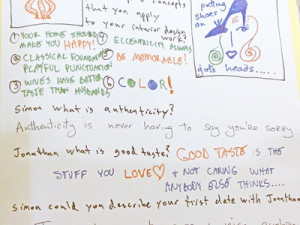 that you apply
to your interior design
work?
① YOUR HOME SHOULD
MAKE YOU HAPPY!
② CLASSICAL
PLAYFUL PUNCTUATION
③ WIVES HAVE BETTER
TASTE THAN HUSBANDS
④ ECCENTRICITY ALWAYS
⑤ BE MEMORABLE!
⑥ COLOR!
putting
shoes
on
girls heads.....
Simon what is authenticity?
Authenticity is never having to say you're sorry
Jonathan what is good taste? GOOD TASTE IS THE
STUFF YOU LOVE & NOT CARING WHAT
ANYBODY ELSE THINKS....
Simon could you describe your first date with Jonathan